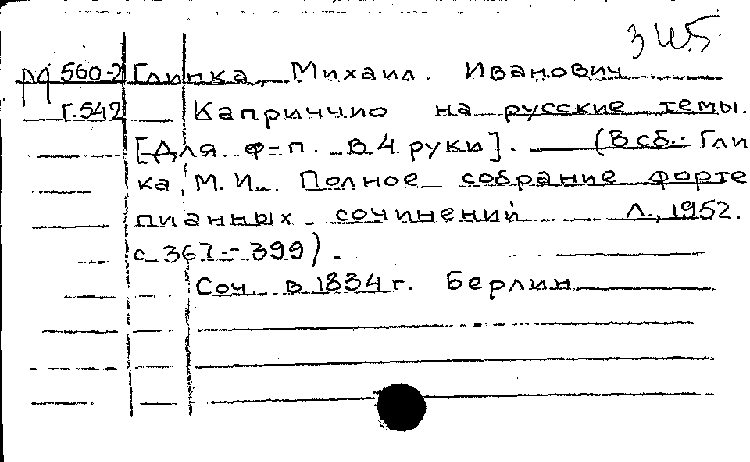 345
М 560-2 Глинка, Михаил Иванович
Г.542 Каприччио на русские темы.
[Для ф-п. в 4 руки]. — (В сб.: Глин
ка, М.И. Полное собрание форте
пианных сочинений Л., 1952.
с 367-399).
Соч. в 1834 г. Берлин